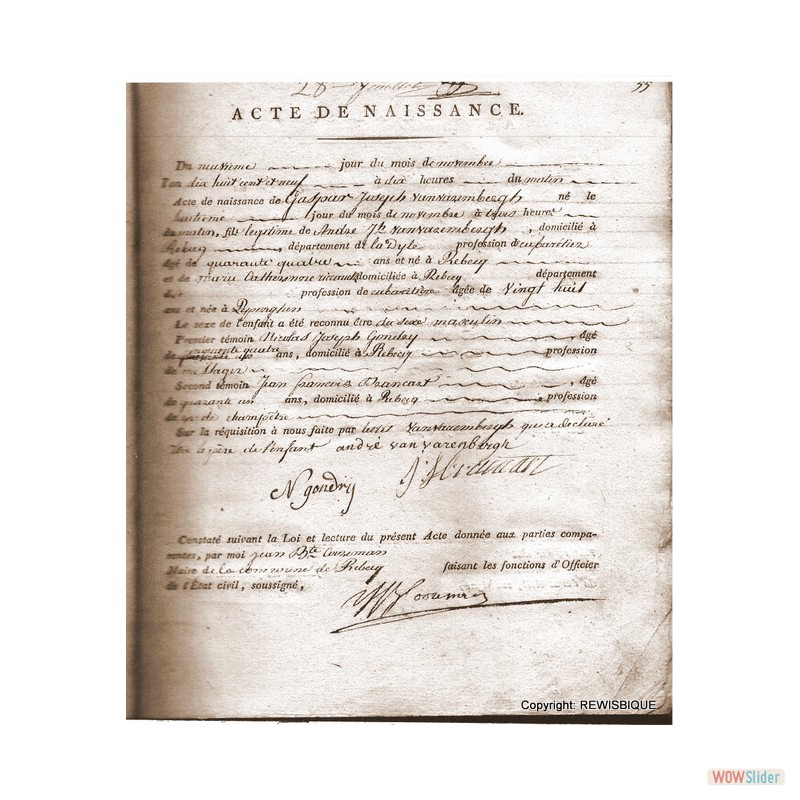 28
55
ACTE DE NAISSANCE.
Du neuvième jour du mois de novembre
l'an dix huit cent et neuf à dix heures du matin
Acte de naissance de Gaspar Joseph Vanvarembergh né le
huitième jour du mois de novembre à trois heures
du matin, fils legitime de André Jh Vanvarembergh, domicilié à
Rebecq, département de la Dyle profession de cabaretier
âgé de quarante quatre ans et né à Rebecq
et de marie Catherinne domiciliée à Rebecq département
profession de cabaretière âgée de Vingt huit
ans et née à Pepinghen
Le sexe de l'enfant a été reconnu être du sexe masculin
Premier témoin Nicolas Joseph Gondry, âgé
de cinquante quatre ans, domicilié à Rebecq profession
de
Second témoin Jean francois, âgé
de quarante un ans, domicilié à Rebecq, profession
de garde champetre
Sur la réquisition à nous faite par Vanvarembergh qui a declaré
être le père de l'enfant andré van varenbergh
N gondrij
Constaté suivant la Loi et lecture du présent Acte donnée aux parties compa-
rantes, par moi jean Bte
Maire de la commune de Rebecq faisant les fonctions d'Officier
de l'État civil, soussigné,
Copyright: REWISBIQUE
WOWSlider